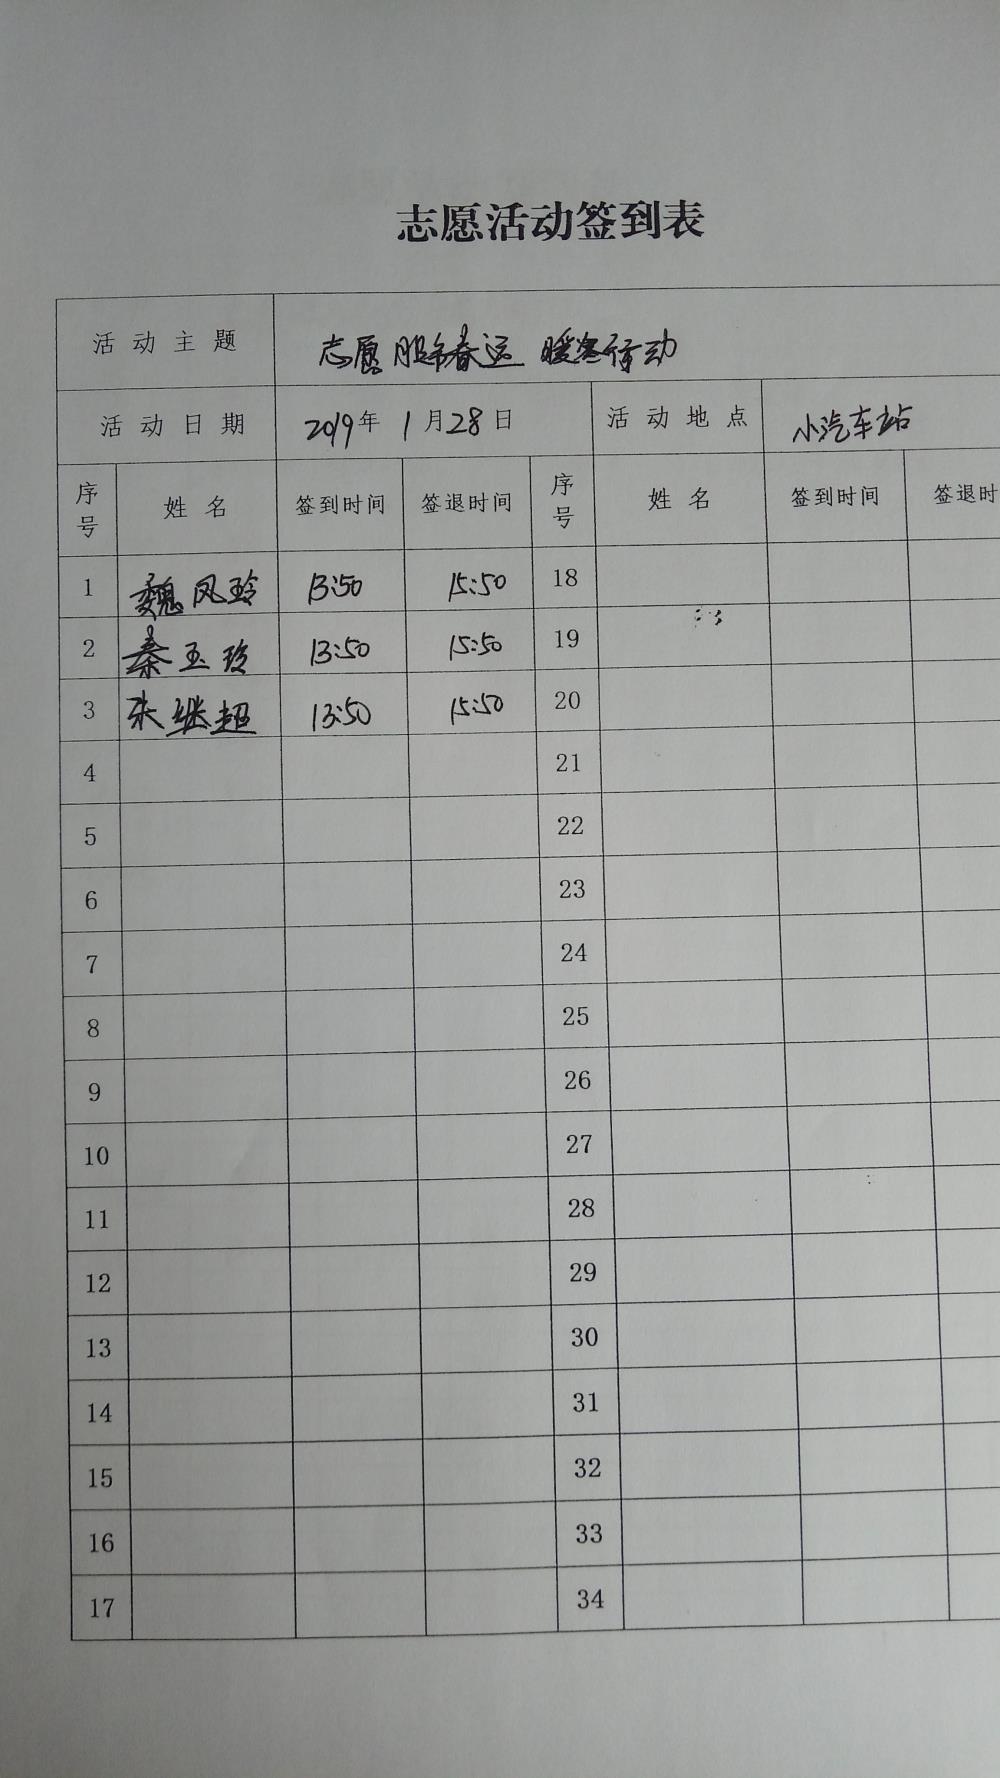 志愿活动签到表
活动主题 志愿服务春运 暖冬行动
活动日期 2019年 1月28日 活动地点 小汽车站
序号 姓名 签到时间 签退时间 序号 姓名 签到时间 签退时
1 魏凤玲 13:50 15:50 18
2 秦玉玲 13:50 15:50 19
3 朱继超 13:50 15:50 20
4 21
5 22
6 23
7 24
8 25
9 26
10 27
11 28
12 29
13 30
14 31
15 32
16 33
17 34